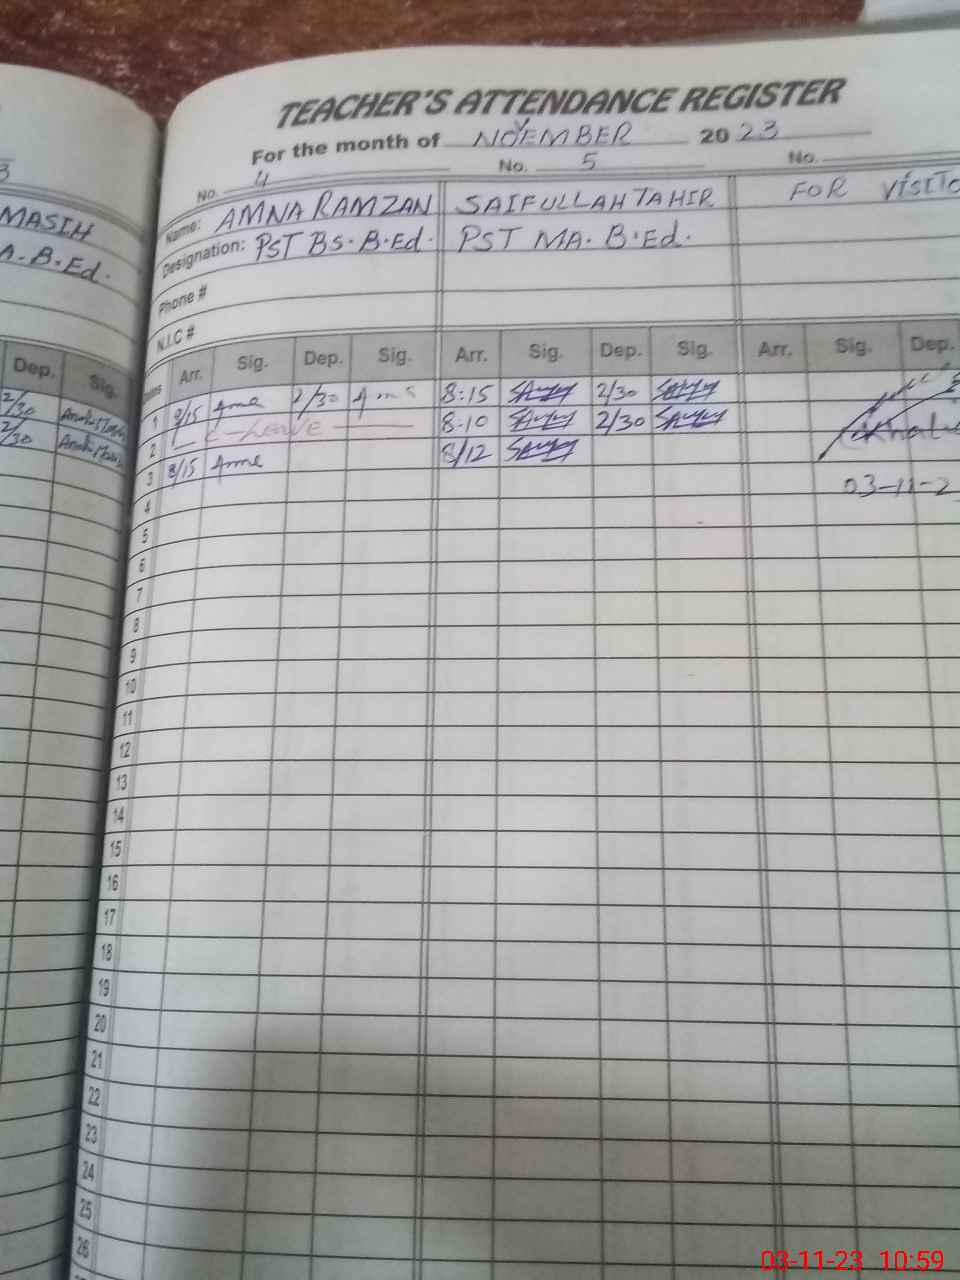 TEACHER'S ATTENDANCE REGISTER
For the month of NOVEMBER 2023
No. 4 No. 5 No.
Name: AMNA RAMZAN SAIFULLAH TAHIR FOR
MASIH
Designation: PST BS. B.Ed. PST MA. B.Ed.
A. B.Ed.
Phone #
N.I.C #
Dep. Sig. Arr. Sig. Dep. Sig. Arr. Sig. Dep. Sig. Arr. Sig. Dep.
2/30 1 8/15 2/30 8:15 2/30
2/30 2 C-Leave 8-10 2/30
3 8/15 8/12
4 03-11-2
5
6
7
8
9
10
11
12
13
14
15
16
17
18
19
20
21
22
23
24
25
26
03-11-23 10:59